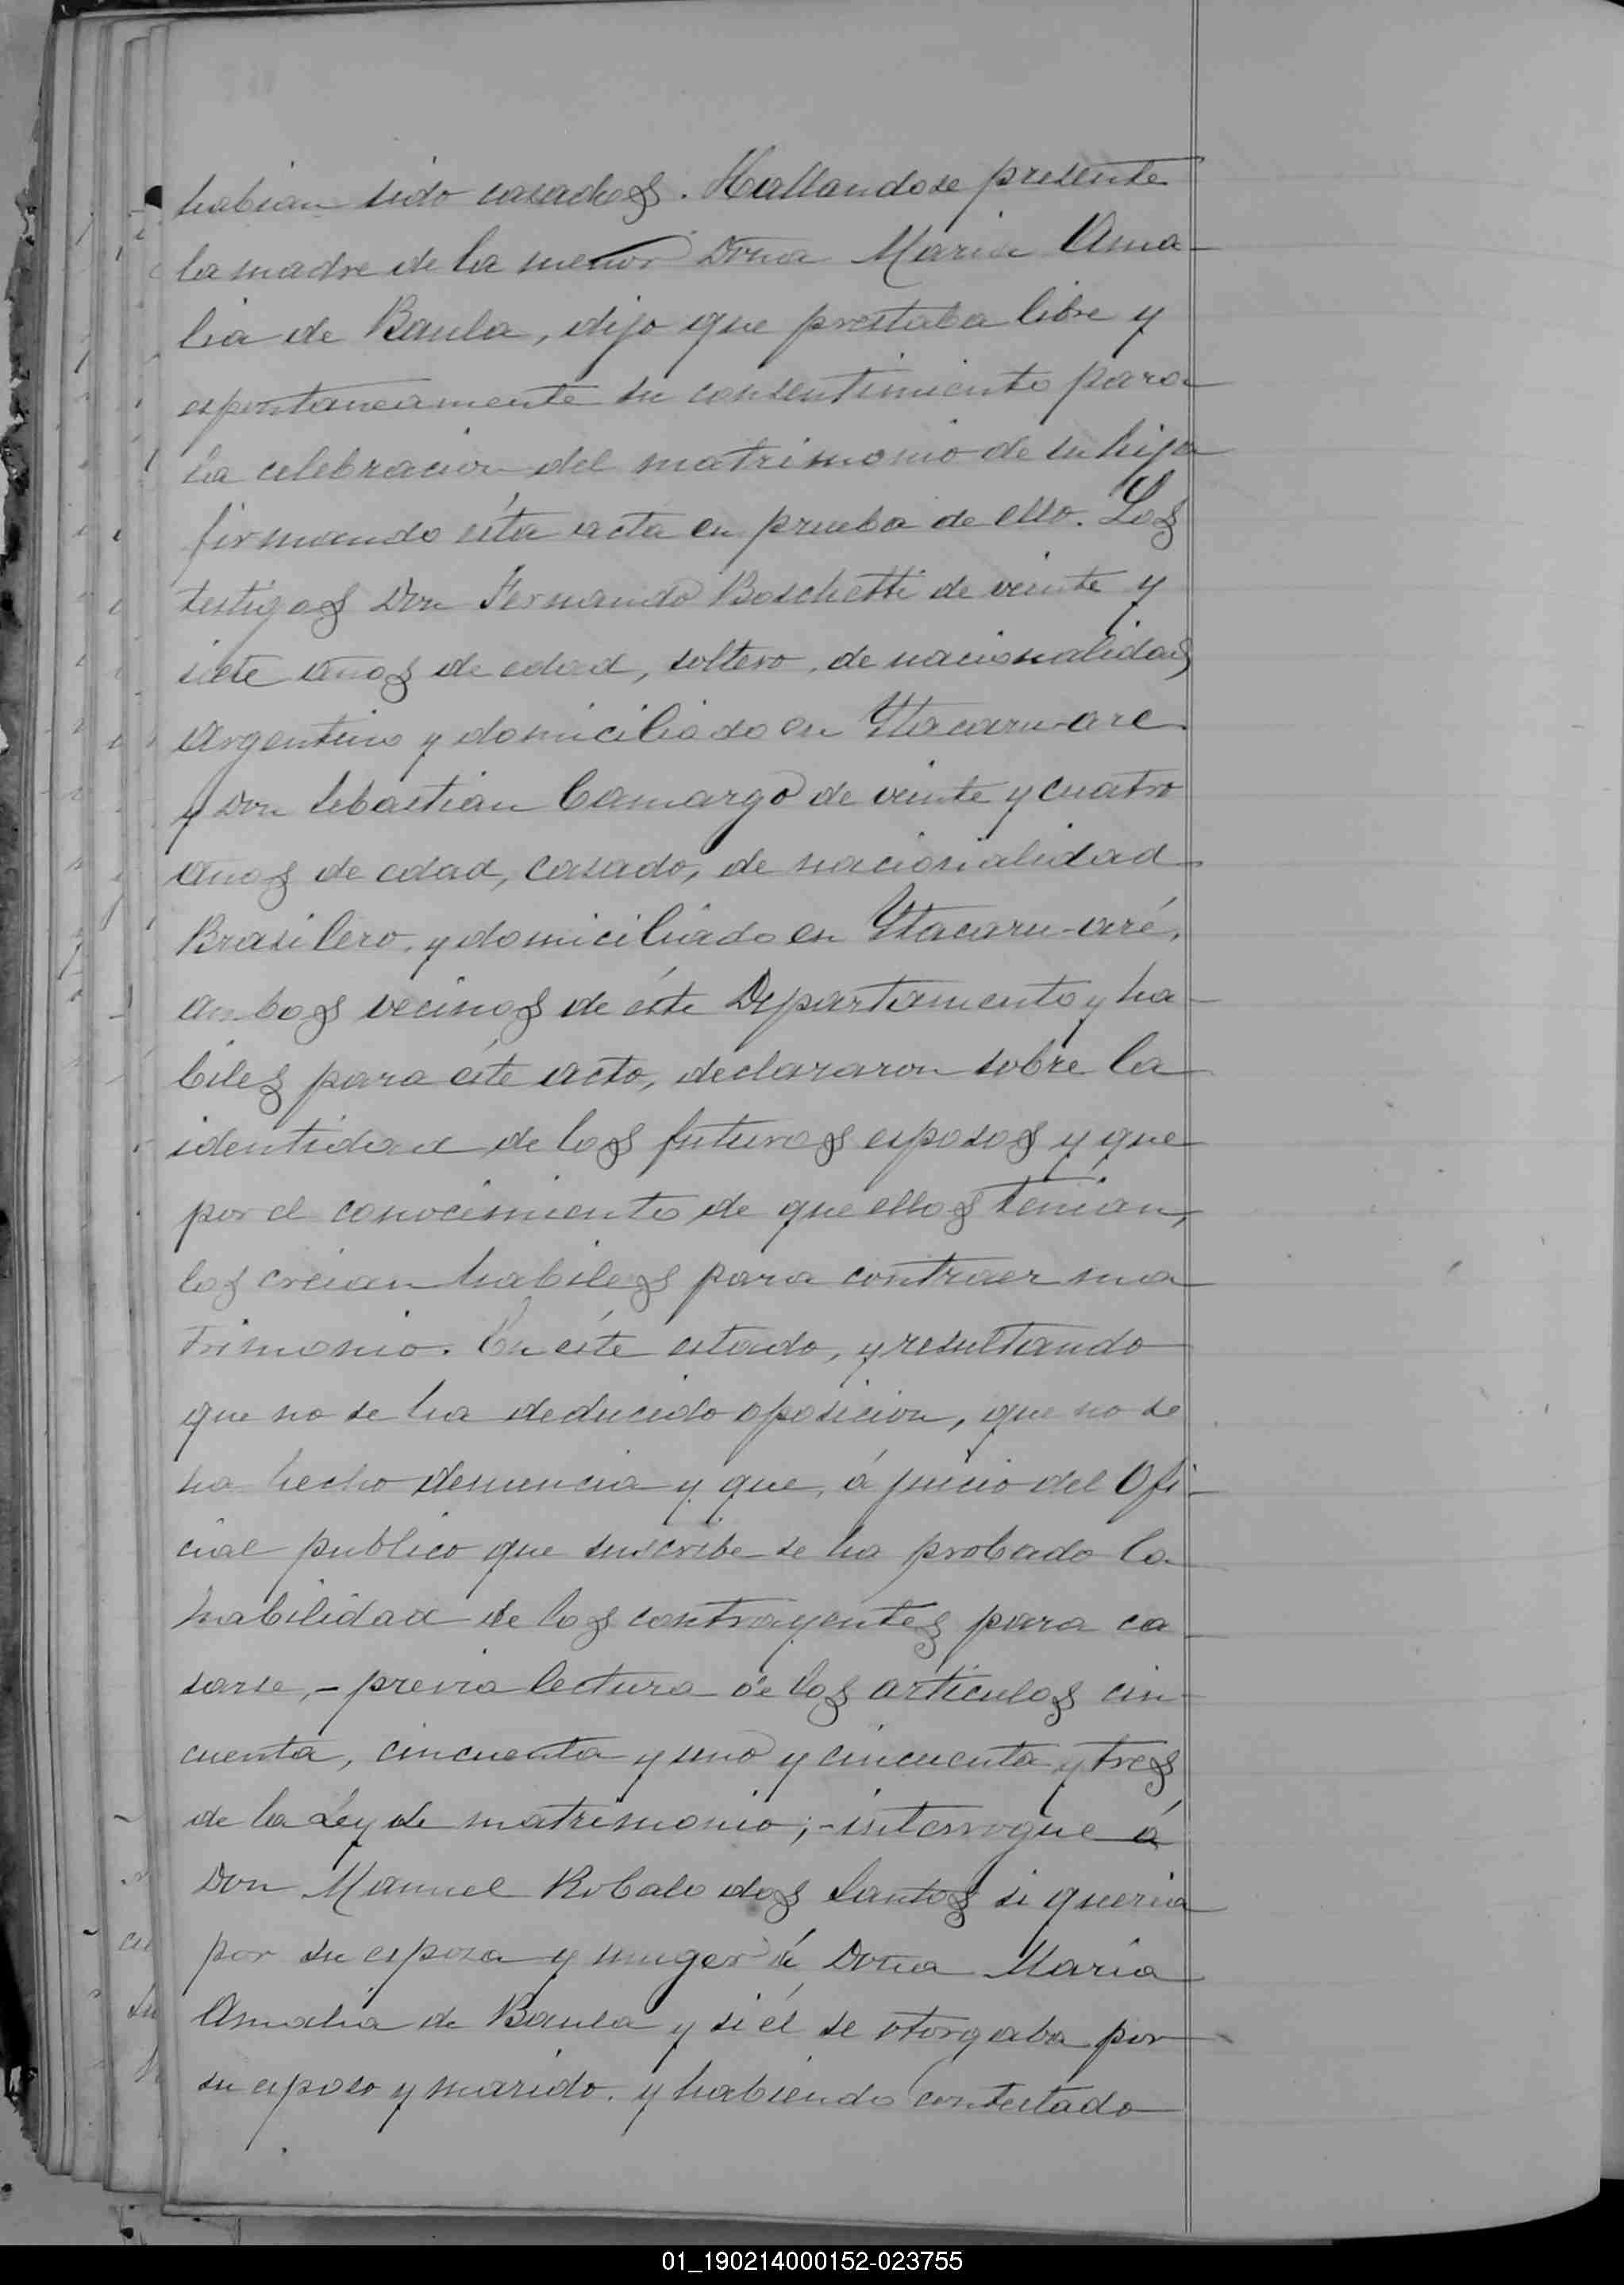 habian sido casados. Hallandose presente
la madre de la menor Doña Maria Ama-
lia de Baula, dijo que prestaba libre y
espontaneamente su consentimiento para
la celebracion del matrimonio de su hija
firmando ésta acta en prueba de ello. Los
testigos Don Fernando Boschetti de veinte y
siete años de edad, soltero, de nacionalidad
Argentino y domiciliado en Ytacaru-are
y Don Sebastian Camargo de veinte y cuatro
años de edad, casado, de nacionalidad
Brasilero, y domiciliado en Ytacaru-aré,
ambos vecinos de éste Departamento y ha-
biles para éste acto, declararon sobre la
identidad de los futuros esposos y que
por el conocimiento de que ellos tenían,
los creian habiles para contraer ma
trimonio. En éste estado, y resultando
que no se ha deducido oposicion, que no se
ha hecho denuncia y que, á juicio del Ofi-
cial publico que suscribe se ha probado la
habilidad de los contrayentes para ca
sarse,- previa lectura de los artículos cin-
cuenta, cincuenta y uno y cincuenta y tres
de la Ley de matrimonio;- interrogue á
Don Manuel Robalo dos Santos si queria
por su esposa y muger á Doña María
Amalia de Baula y si él se otorgaba por
su esposo y marido. y habiendo contestado
01_190214000152-023755